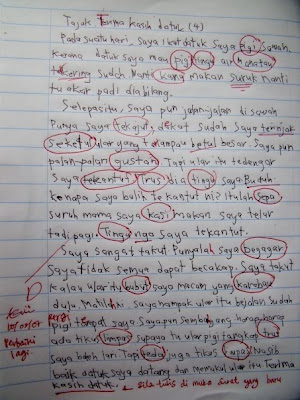 Tajok Terima kasih datuk (4)
Pada suatu hari, saya ikut datuk saya Pigi sawah.
kerama datuk saya mau pig tingo air. Manatau
kering sudah. Nanti kana makan suruk nanti
tu akar padi dia bilang.
Selepas itu, Saya pun jalan-jalan di sawah
Punya saya terajut, dekat sudah saya ternojak
seketul ular yang betul besar. Saya pun
palan-palan gustan. Tapi ular itu tedengar
Saya tekantut. Trus dia tingo saya. Buduh
kenapa saya bulih tekantut ni? Itulah Sepa
suruh mama saya kasi makan saya telur
tadi pagi. Tingu nga saya tekantut.
Saya sangat takut. Punyalah saya Begagar
Saya tidak semua dapat becakap. Saya takut
kalau ular tu bubut saya macam yang karabau
dulu. Matilah ni. Saya nampak ular itu bejalan sudah
pigi tempat saya. Saya pun sembayang harap-harap
ada tikus limpas supaya tu ular pigi tangkap tikus
saya buleh lari. Tapi teda juga tikus limpas. Nasib
baik datuk saya datang dan memukul ular itu. Terima
kasih datuk.
Sila tulis di muka surat yang baru
10/07/07
Perbaiki
lagi.